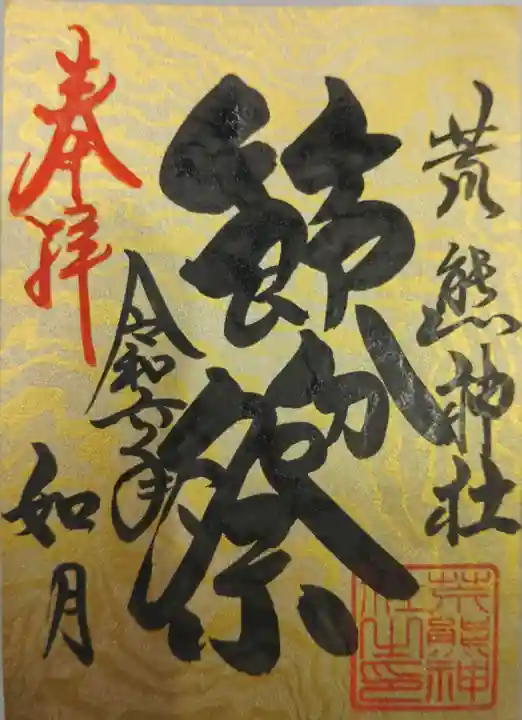 荒熊神社
節分祭
奉拝
令和六年
如月
荒熊神
社之印